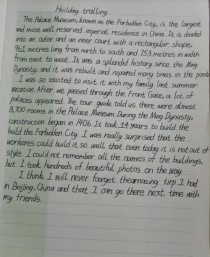 Holiday travelling
The Palace Museum, known as the Forbidden City, is the largest
and most well reserved imperial residence in China. It is divided
into an outer and an inner court with a rectangular shape,
961 metres long from north to south and 753 metres in width
from east to west. It was a splendid history since the Ming
Dynasty, and it was rebuilt and repaired many times in the past.
I was so excited to visit it with my family last summer
vacation. After we passed through the Front Gate, a lot of
palaces appeared. The tour guide told us there were almost
8,700 rooms in the Palace Museum. During the Ming Dynasty,
construction began in 1406. It took 14 years to build the
build the Forbidden City. I was really surprised that the
workers could build it so well that even today it is not out of
style. I could not remember all the names of the buildings,
but I took hundreds of beautiful photos on the way.
I think I will never forget the amazing trip I had
in Beijing, China and that I can go there next time with
my friends.